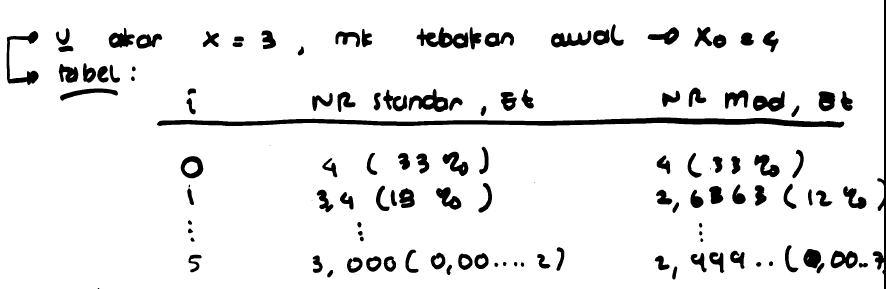 u akar x = 3, mk tebakan awal → x₀ = 4
tabel :
i NR standar, εt NR mod, εt
0 4 (33 %) 4 (33 %)
1 3,4 (13 %) 2,6363 (12 %)
⋮ ⋮ ⋮
5 3,000 (0,00....2) 2,999.. (0,00..7